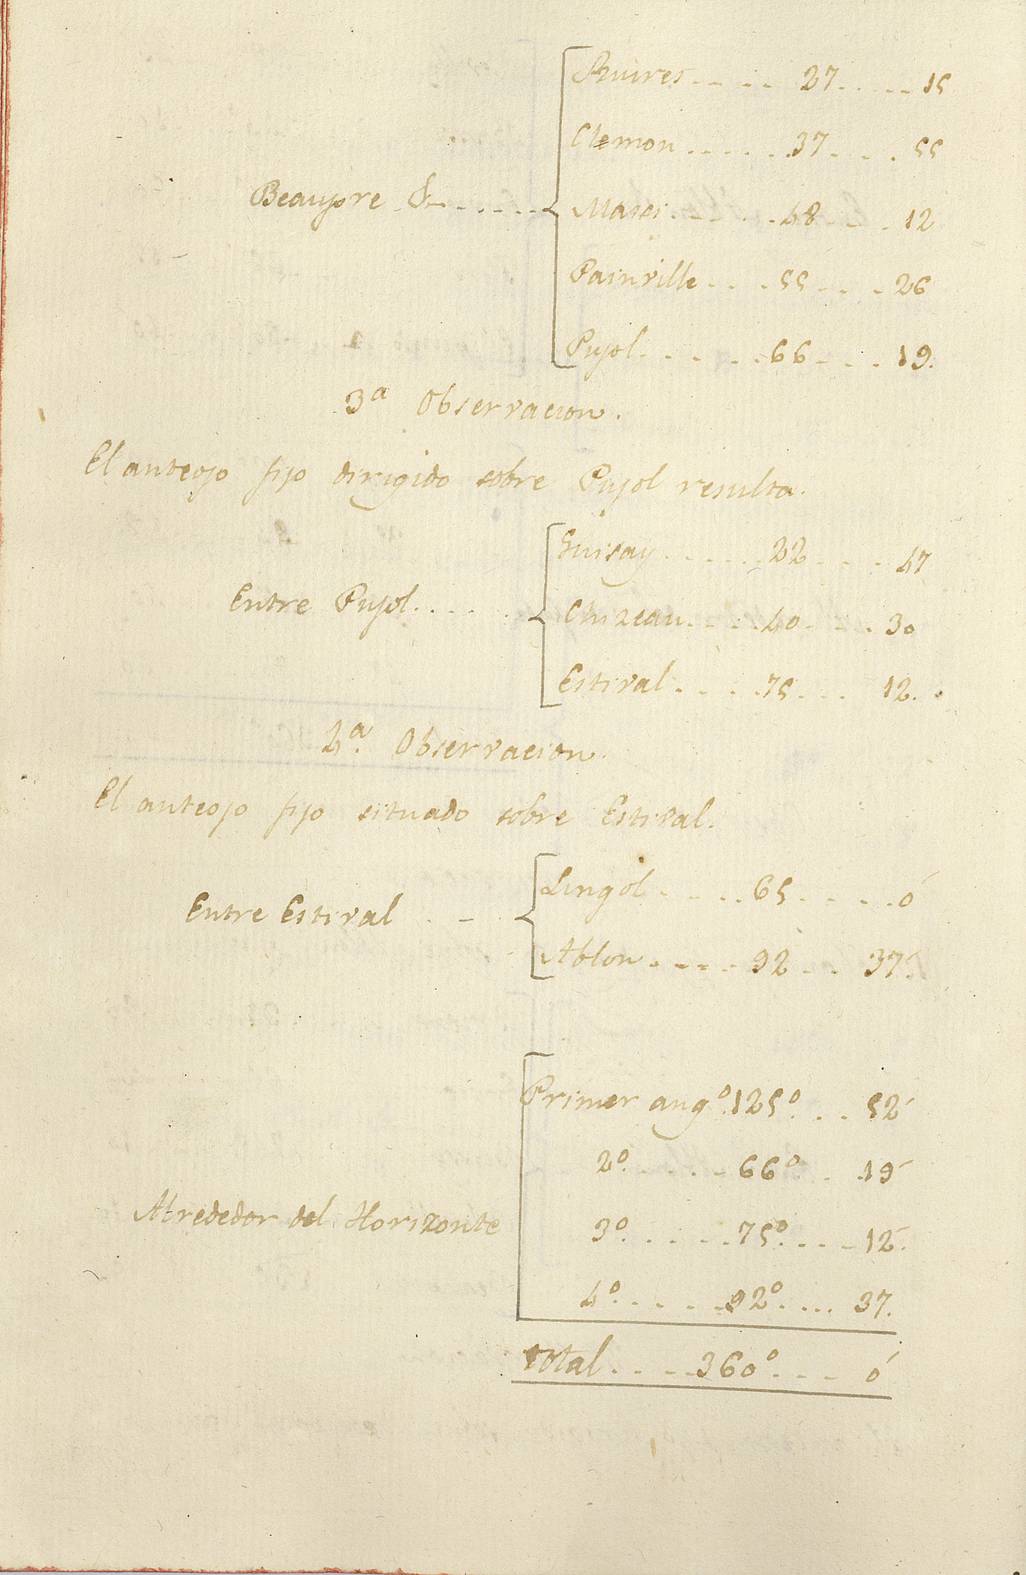 Ruires...... 27..... 15
Clemon...... 37.... 55
Beaupre &......
Maisi...... 48.... 12
Painville.... 55.... 26
Pujol...... 66.... 19.
3ª Observacion.
El anteojo fijo dirigido sobre Pujol resulta.
Guisay...... 22.... 47
Entre Pujol....
Chizeau.... 40.... 30
Estival.... 75.... 12.
4ª. Observacion.
El anteojo fijo situado sobre Estival.
Lingol.... 65..... 0´
Entre Estival . -
Ablon.... 92... 37´
Primer angº. 125º... 52´
2º..... 66º... 19´
Alrededor del Horizonte
3º..... 75º.... 12´.
4º..... 92º.... 37.
Total.... 360º.... 0´